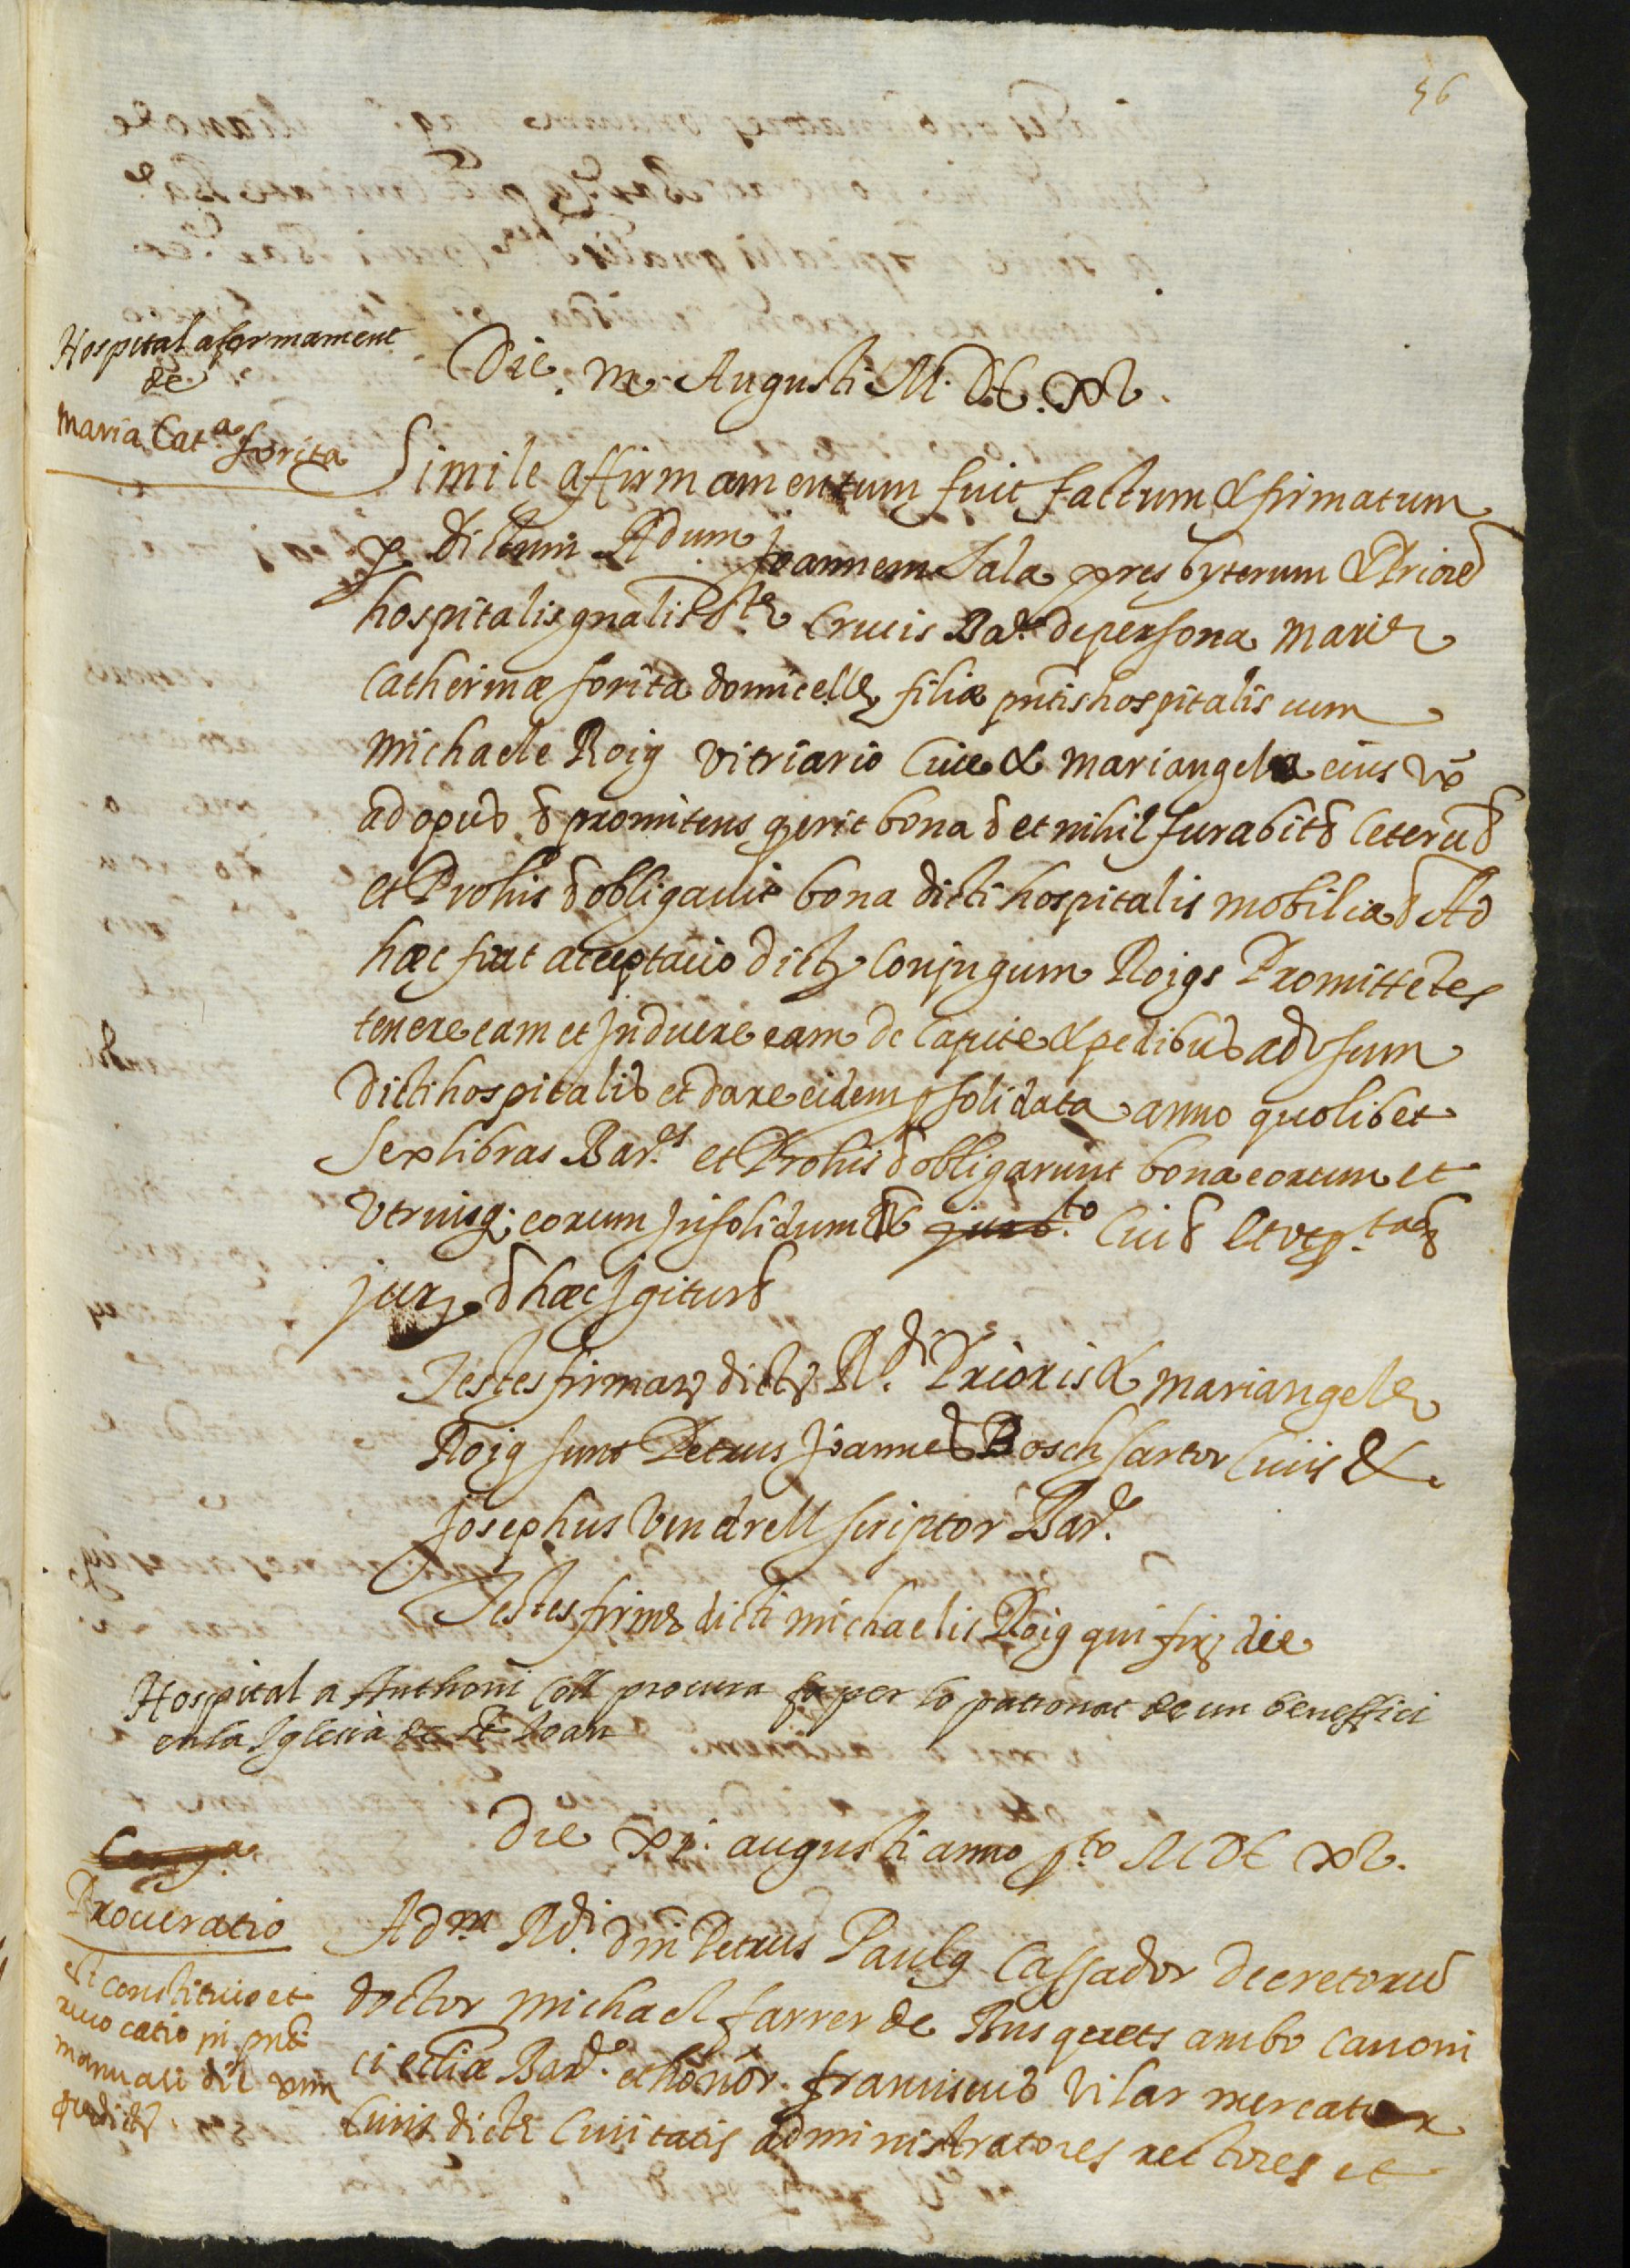 56
Hospital afermament
de
Maria Cat.a forita
Die. III. Augusti M. DC. XL.
Simile affirmamentum fuit factum & firmatum
p dictum Rdum Joannem Sala presbyterum & Priore
hospitalis gnalis Ste Crucis Bar.e de persona Marie
Catherinæ forita domicelle filiæ pntis hospitalis cum
Michaele Roig vitriario Cive & Mariangela eius ux
ad opus promitens q erit bona et nihil furabit Ceterū
et Pro his obligavit bona dicti hospitalis mobilia Ad
hæc fuit aceptatio dict Conjugum Roigs Promittetes
tenere eam et Induere eam de Capite & pedibus ad usum
dicti hospitalis et dare eidem p solidata anno quolibet
Sex libras Bar.s et Pro his obligarunt bona eorum et
utriusq; eorum Insolidum juro.to
jur hæc Igitur
Testes firmar dict Rdi. Prioris & Mariangele
Roig sunt Petrus Joannes Bosch sartor Civis &
Josephus Vendrell scriptor Bar.e
Testes firme dicti Michaelis Roig qui fir die
Hospital a Anthoni Coll procura fa per lo patronat de un beneffici
en la Iglesia de St Joan
Die XI. augusti anno p.to MDC XL.
Procuratio
est constitutio et
revocatio in pnti
manuali die
predict
Adm Rdi. dni Petrus Paulus Cassador decretorū
doctor Michael farrer de Busquets ambo canoni
ci ecclīæ Bar.e et honor. franciscus Vilar mercator
Civis dicte Civitatis administratores rectores et